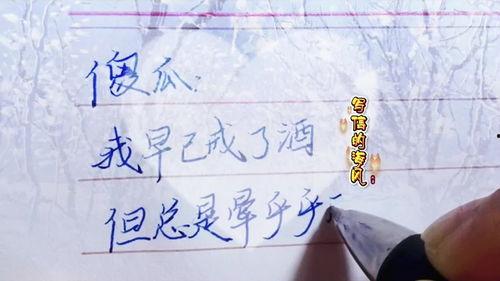 傻瓜：
我早已戒了酒
但总是晕乎乎
写信的海风